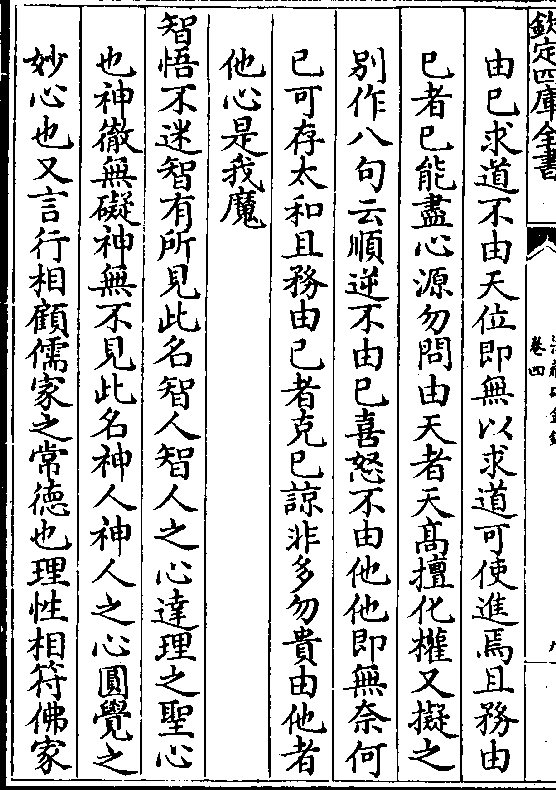 欽定四庫全書
卷四
由已求道不由天位即無以求道可使進焉且務由
已者已能盡心源勿問由天者天高擅化權又擬之
別作八句云順逆不由已喜怒不由他他即無奈何
已可存太和且務由已者克已諒非多勿貴由他者
他心是我魔
智悟不迷智有所見此名智人智人之心達理之聖心
也神徹無礙神無不見此名神人神人之心圓覺之
妙心也又言行相顧儒家之常德也理性相符佛家